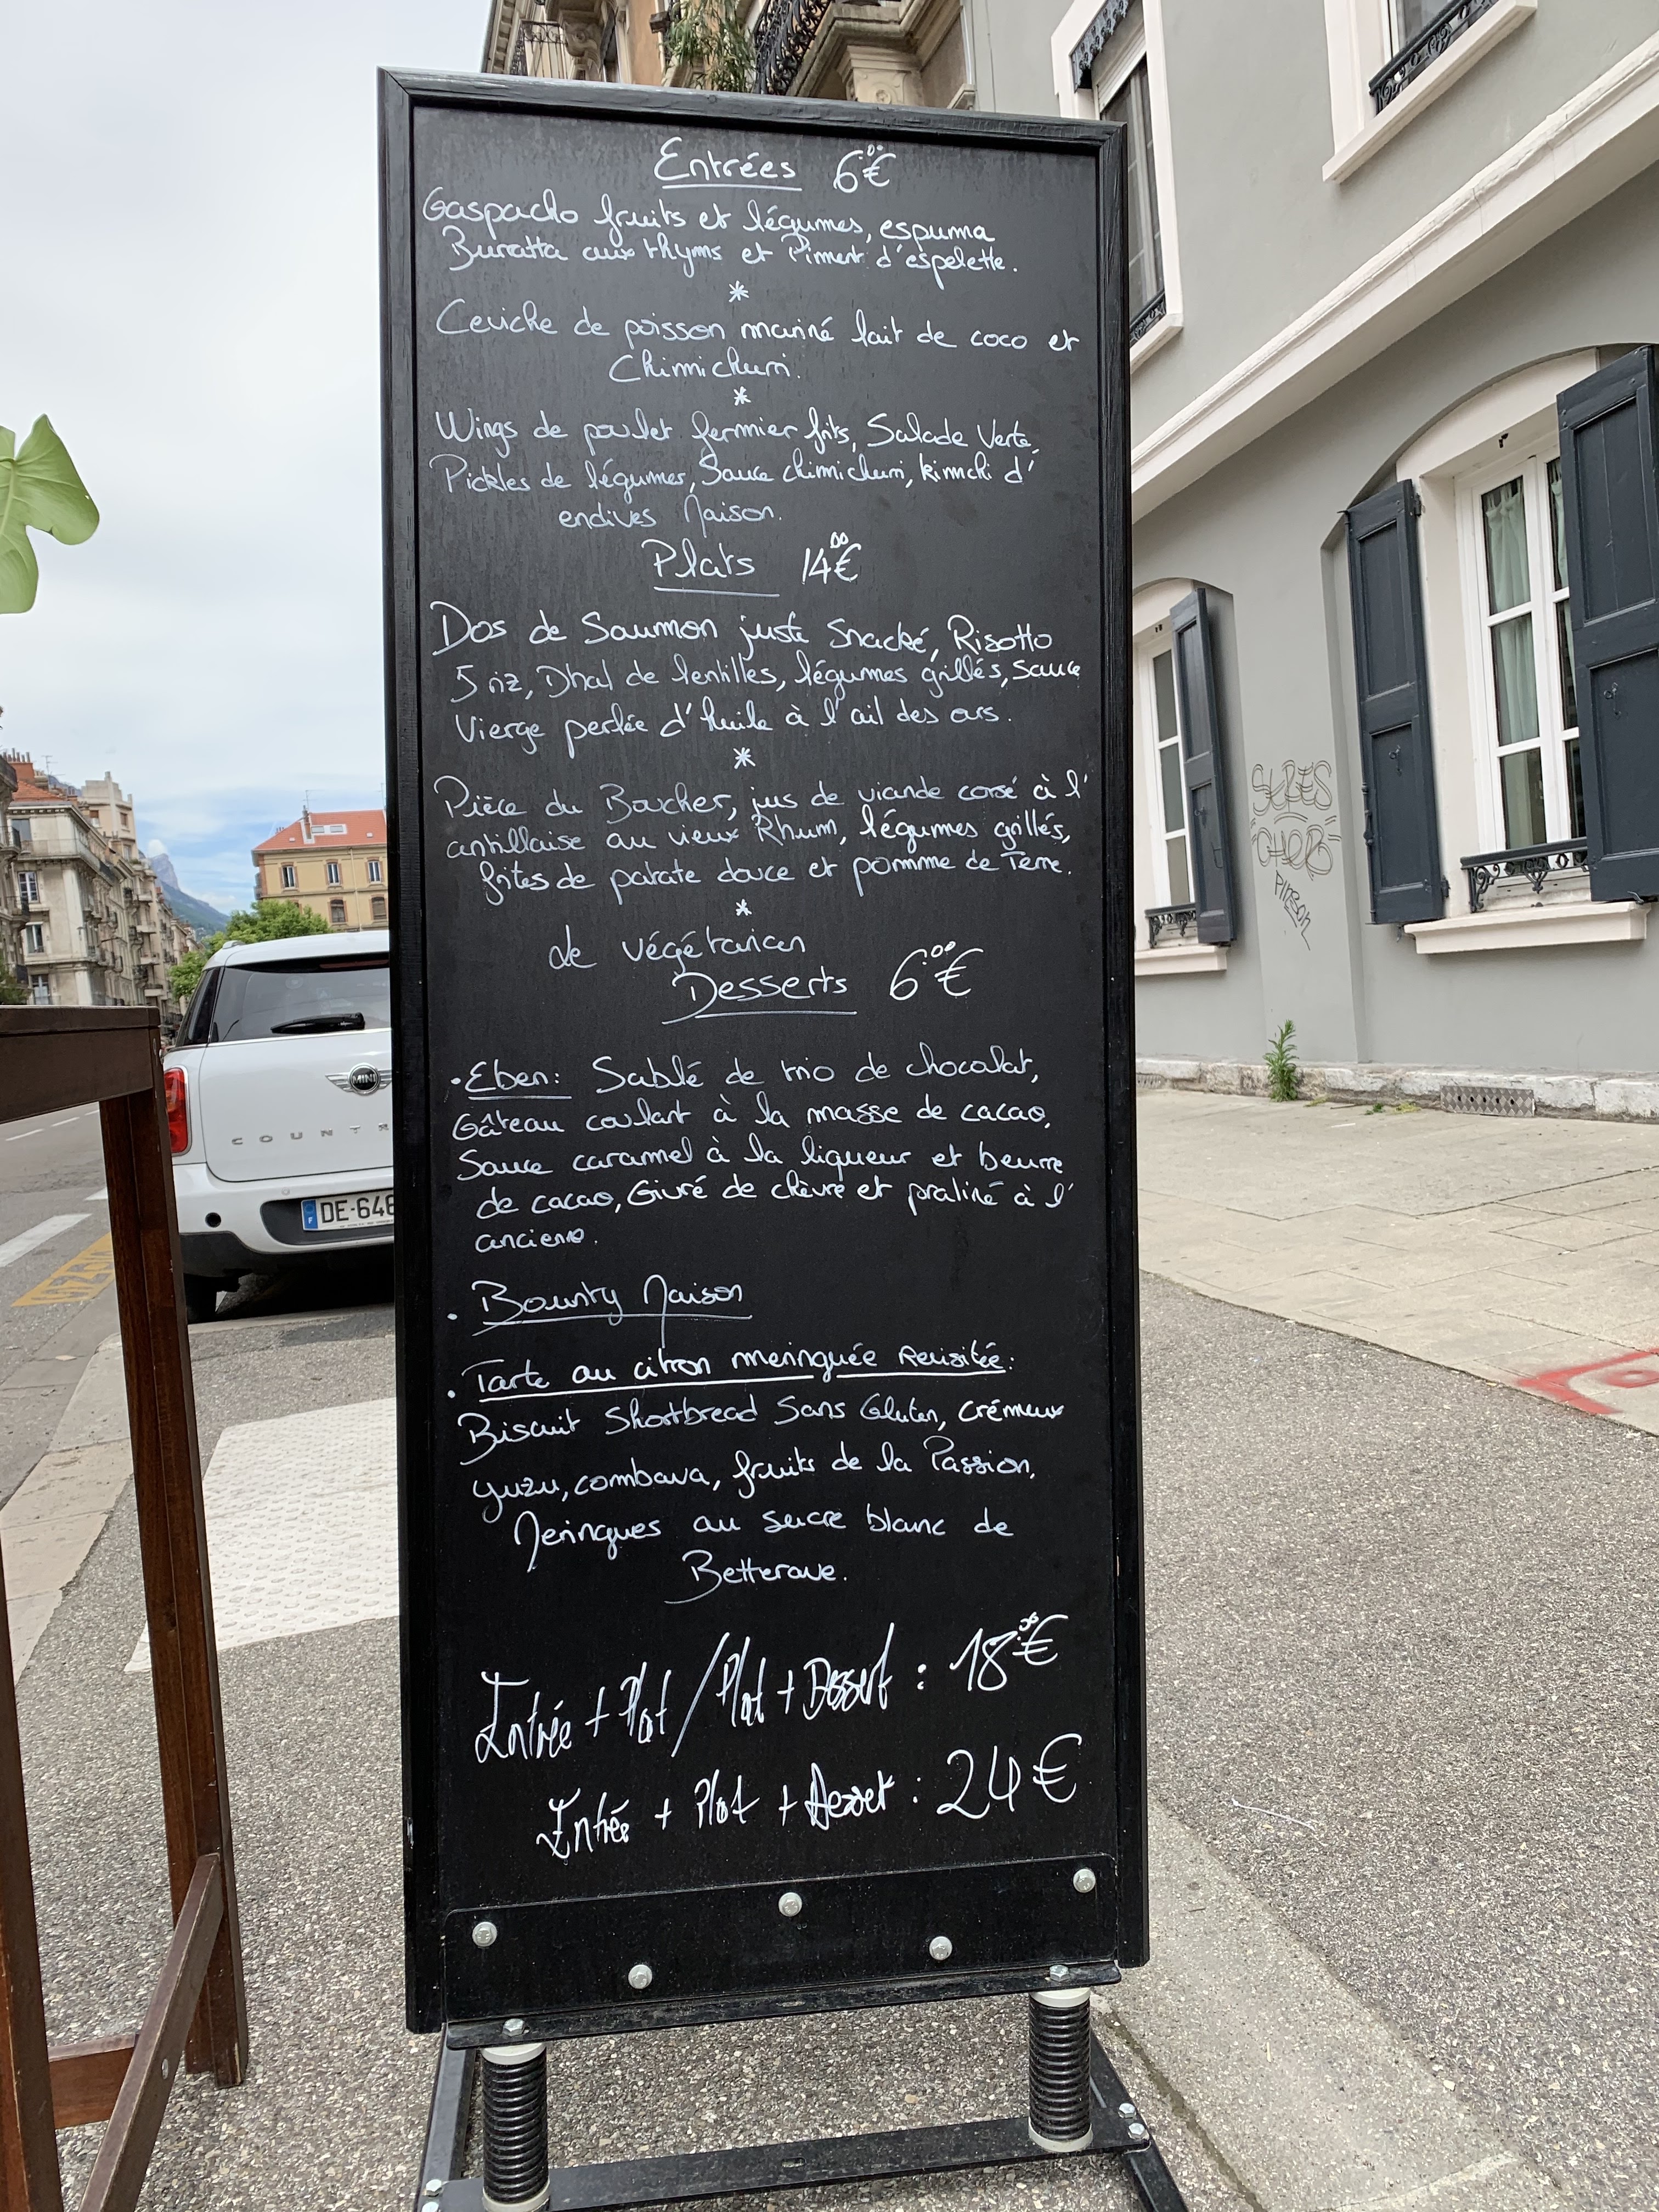 Entrées 6,00€
Gaspacho fruits et légumes, espuma
Buratta aux thyms et Piment d'espelette.
*
Ceviche de poisson mariné lait de coco et
Chimichurri.
*
Wings de poulet fermier frits, Salade Verte,
Pickles de légumes, Sauce chimichurri, kimchi d'
endives Maison.
Plats 14,00€
Dos de Saumon juste Snacké, Risotto
5 riz, Dhal de lentilles, légumes grillés, sauce
Vierge perlée d'huile à l'ail des ours.
*
Pièce du Boucher, jus de viande corsé à l'
antillaise au vieux Rhum, légumes grillés,
frites de patate douce et pomme de Terre.
*
Le végétarien
Desserts 6,00€
• Eben: Sablé de trio de chocolat,
Gâteau coulant à la masse de cacao,
Sauce caramel à la liqueur et beurre
de cacao, Givré de chèvre et praliné à l'
ancienne.
• Bounty Maison
• Tarte au citron meringuée revisitée:
Biscuit Shortbread Sans Gluten, crémeux
yuzu, combava, fruits de la Passion,
Meringues au sucre blanc de
Betterave.
Entrée + Plat / Plat + Dessert : 18,00€
Entrée + Plat + Dessert : 24€
MINI
COUNTR
DE-646
F